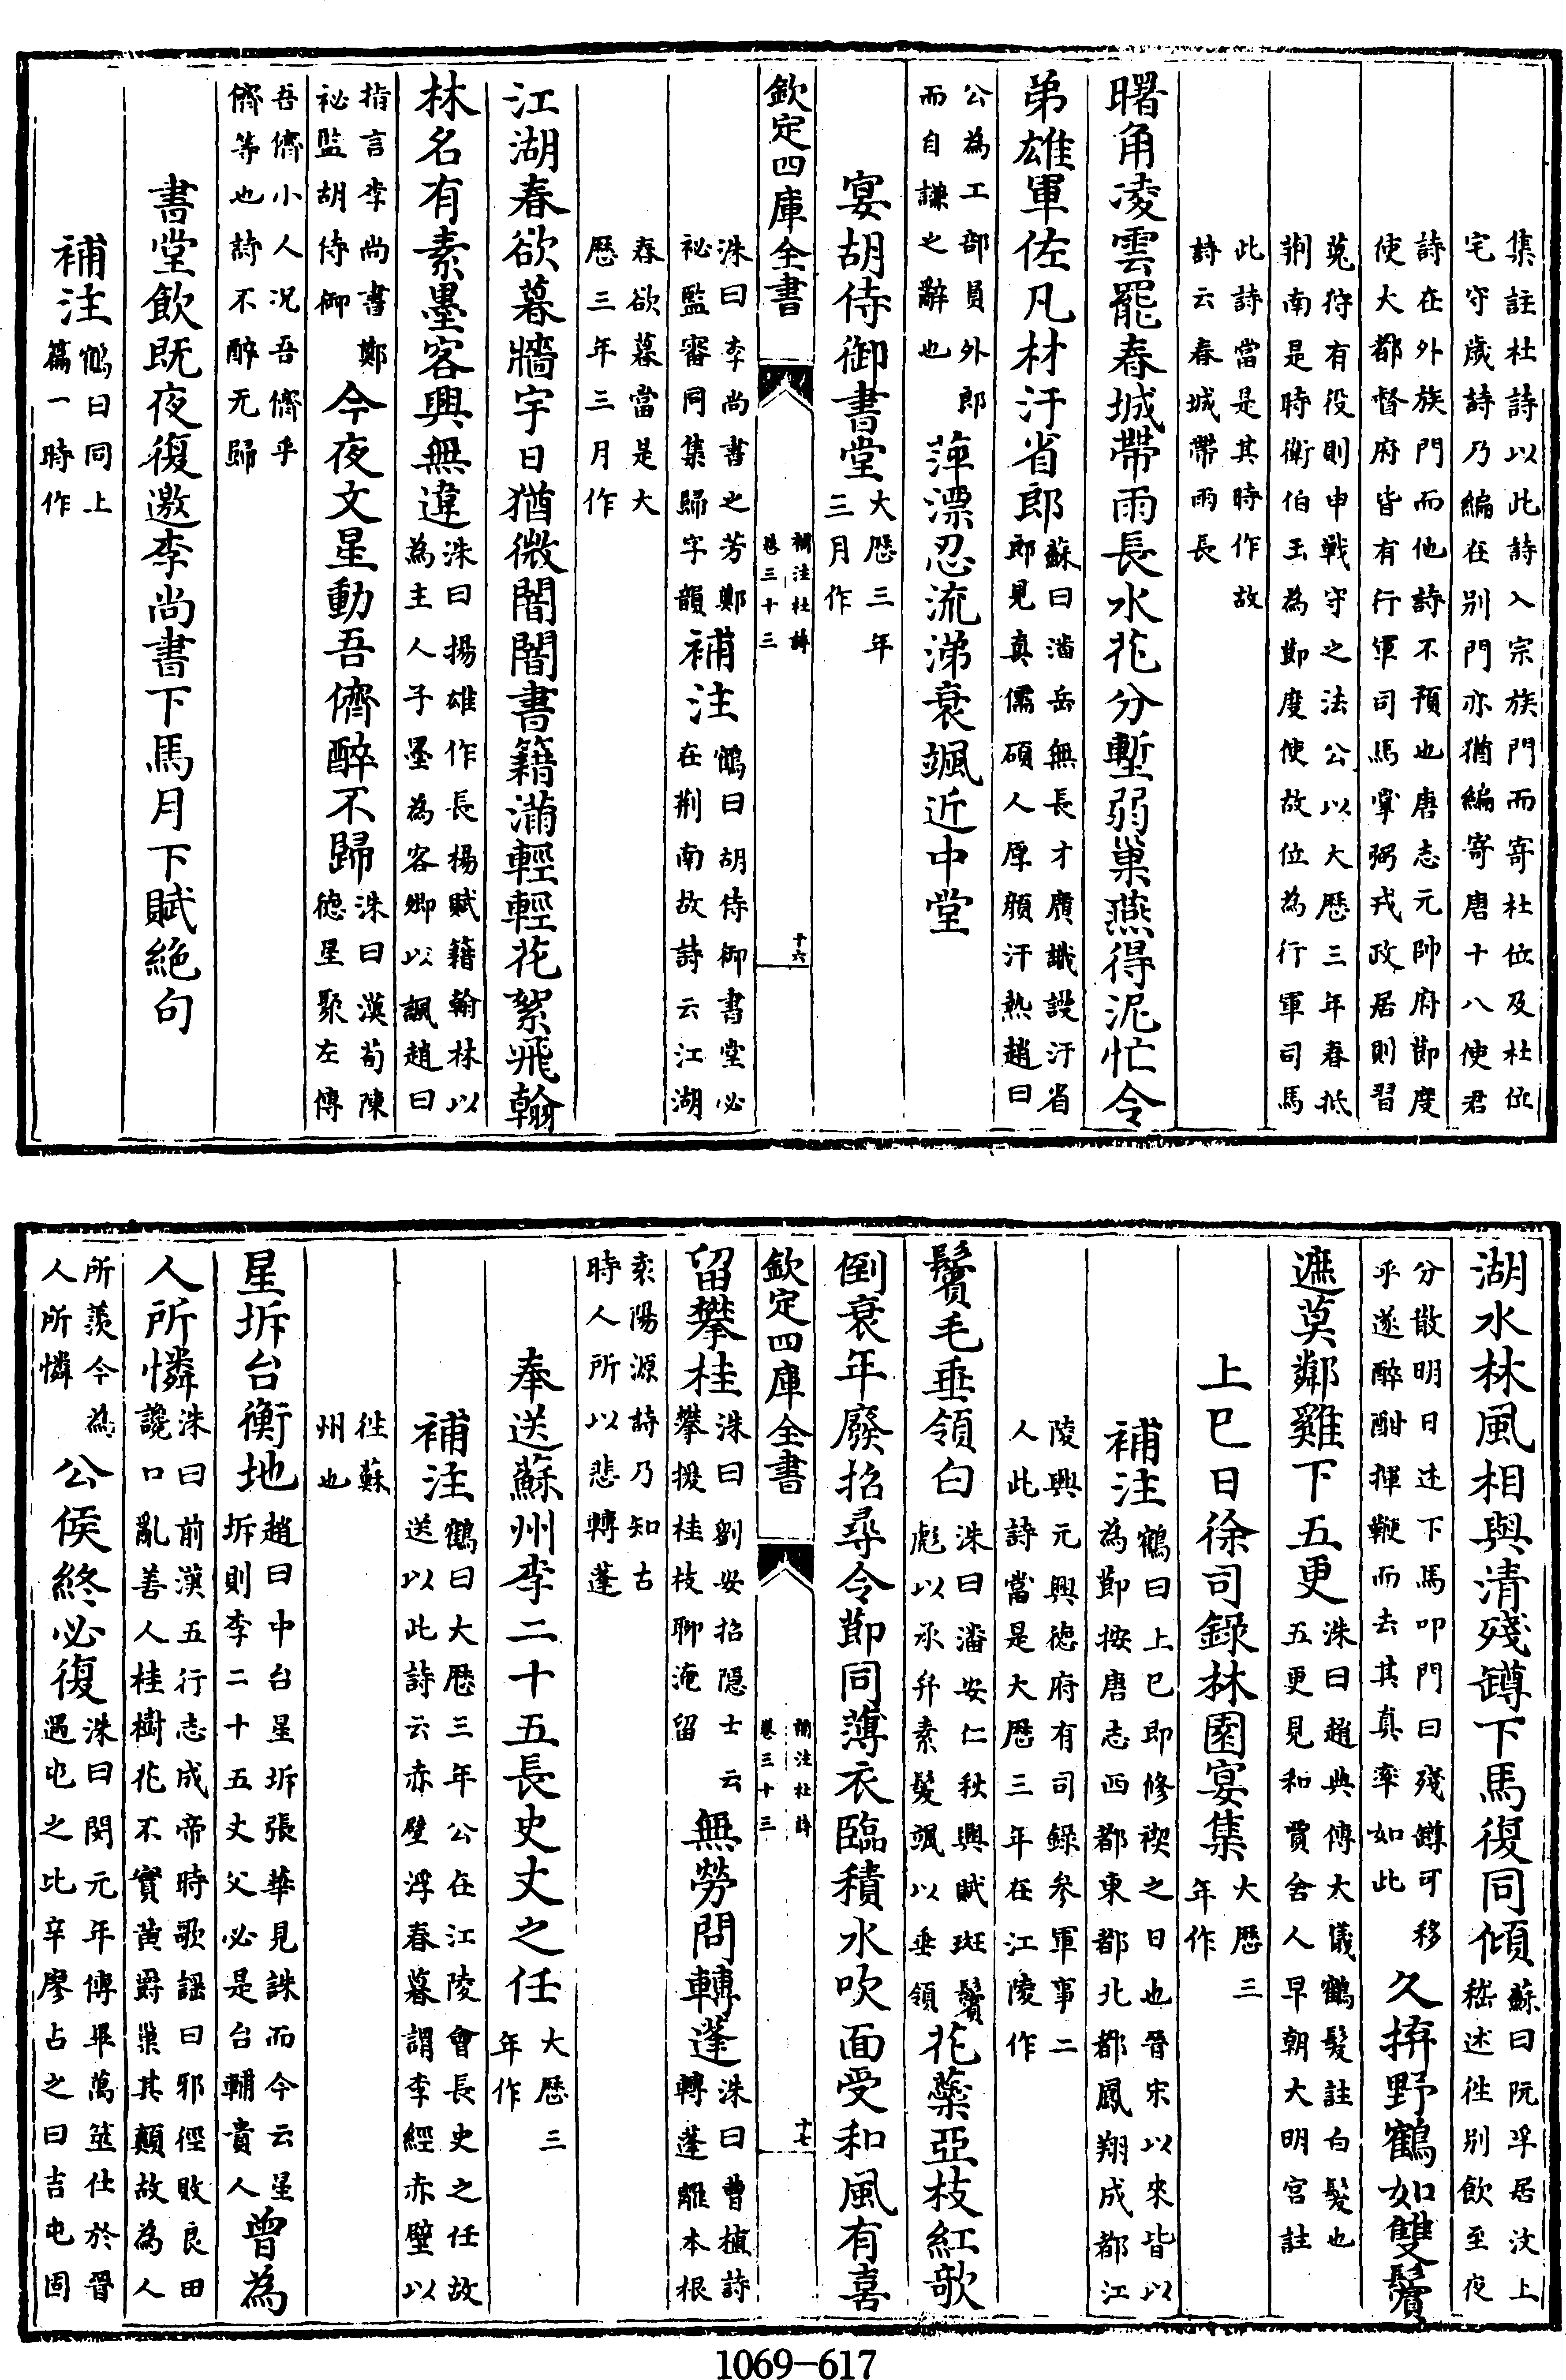 集註杜詩以此詩入宗族門而寄杜位及杜位
宅守歲詩乃編在别門亦猶編寄唐十八使君
詩在外族門而他詩不預也唐志元帥府節度
使大都督府皆有行軍司馬掌弼戎政居則習
蒐狩有役則申戰守之法公以大厯三年春抵
荆南是時衛伯玉為節度使故位為行軍司馬
此詩當是其時作故
詩云春城帶雨長
曙角凌雲罷春城帶雨長水花分塹弱巢燕得泥忙令
弟雄軍佐凡材汙省郎
蘇曰潘岳無長才廣識設汙省
郎見真儒碩人厚顔汗熱趙曰
公為工部員外郎
而自謙之辭也
萍漂忍流涕衰颯近中堂
宴胡侍御書堂
大厯三年
三月作
欽定四庫全書
補注杜詩
卷三十三
十六
洙曰李尚書之芳鄭
祕監審同集歸字韻
補注
鶴曰胡侍御書堂必
在荆南故詩云江湖
春欲暮當是大
厯三年三月作
江湖春欲暮牆宇日猶微闇闇書籍滿輕輕花絮飛翰
林名有素墨客興無違
洙曰揚雄作長楊賦籍翰林以
為主人子墨為客卿以諷趙曰
指言李尚書鄭
祕監胡侍御
今夜文星動吾儕醉不歸
洙曰漢荀陳
德星聚左傳
吾儕小人况吾儕乎
儕等也詩不醉无歸
書堂飲既夜復邀李尚書下馬月下賦絶句
補注
鶴曰同上
篇一時作
湖水林風相與清殘罇下馬復同傾
蘇曰阮孚居汶上
嵇述徃别飲至夜
分散明日述下馬叩門曰殘罇可移
乎遂醉酣揮鞭而去其真率如此
久拚野鶴如雙鬢
遮莫鄰雞下五更
洙曰趙典傳太儀鶴髮註白髮也
五更見和賈舍人早朝大明宫註
上巳日徐司錄林園宴集
大厯三
年作
補注
鶴曰上巳即修禊之日也晉宋以來皆以
為節按唐志西都東都北都鳳翔成都江
陵興元興德府有司錄參軍事二
人此詩當是大厯三年在江陵作
鬢毛垂領白
洙曰潘安仁秋興賦斑鬢
彪以承弁素髮颯以垂領
花蘂亞枝紅欹
倒衰年廢招尋令節同薄衣臨積水吹面受和風有喜
欽定四庫全書
補注杜詩
卷三十三
十七
留攀桂
洙曰劉安招隠士云
攀援桂枝聊淹留
無勞問轉蓬
洙曰曹植詩
轉蓬離本根
袁陽源詩乃知古
時人所以悲轉蓬
奉送蘇州李二十五長史丈之任
大厯三
年作
補注
鶴曰大厯三年公在江陵會長史之任故
送以此詩云赤壁浮春暮謂李經赤壁以
徃蘇
州也
星坼台衡地
趙曰中台星坼張華見誅而今云星
坼則李二十五丈父必是台輔貴人
曾為
人所憐
洙曰前漢五行志成帝時歌謡曰邪徑敗良田
讒口亂善人桂樹花不實黄爵巢其顛故為人
所羡今為
人所憐
公侯終必復
洙曰閔元年傳畢萬筮仕於晉
遇屯之比辛廖占之曰吉屯固
1069-617